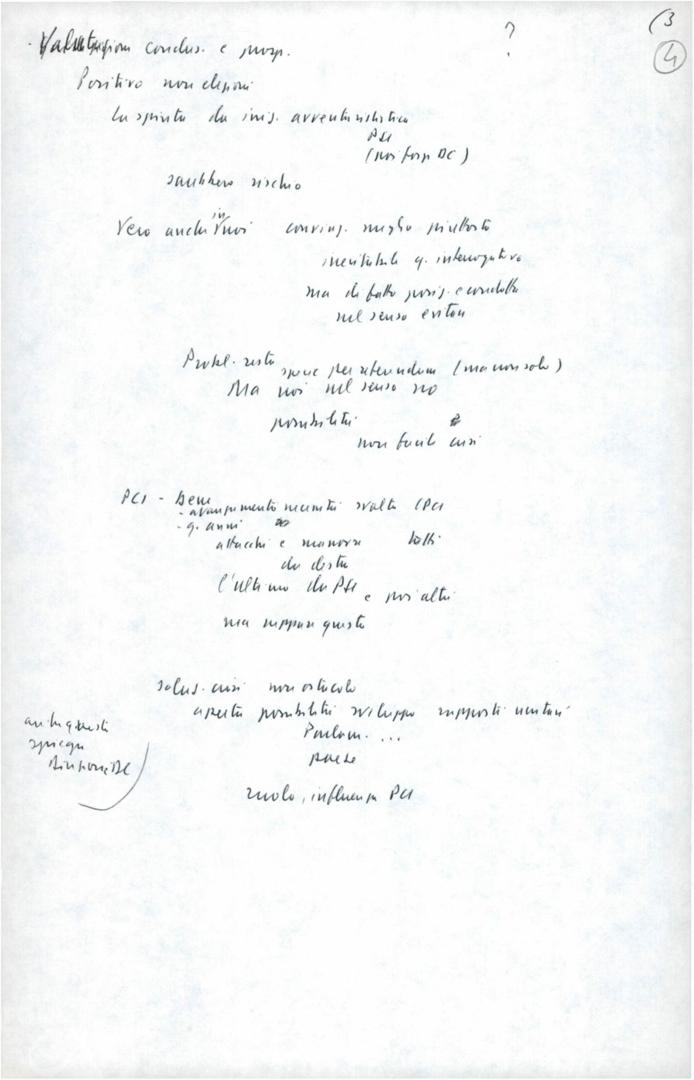 ?
(3
4
- Valutazioni conclus. e prosp.
Positivo non elezioni
La spinta da iniz. avventuristica
PSI
(poi forze DC)
sarebbero rischio
Vero anche in noi convinz. meglio piuttosto
inevitabile q. interrogativo
ma di fatto posiz. e condotta
nel senso evitare
Probl. resta spec per referendum (ma non solo)
Ma noi nel senso no
possibilità
non facile crisi
PCI - Bene
- avanzamento svolta (PCI
- q. anni
attacchi e manovre tutti
da destra
l'ultimo da PSI e poi altri
ma neppure questo
soluz. crisi non ostacolo
aperta possibilità sviluppo rapporti unitari
Parlam. ...
paese
ruolo, influenza PCI
anche questo
spiega